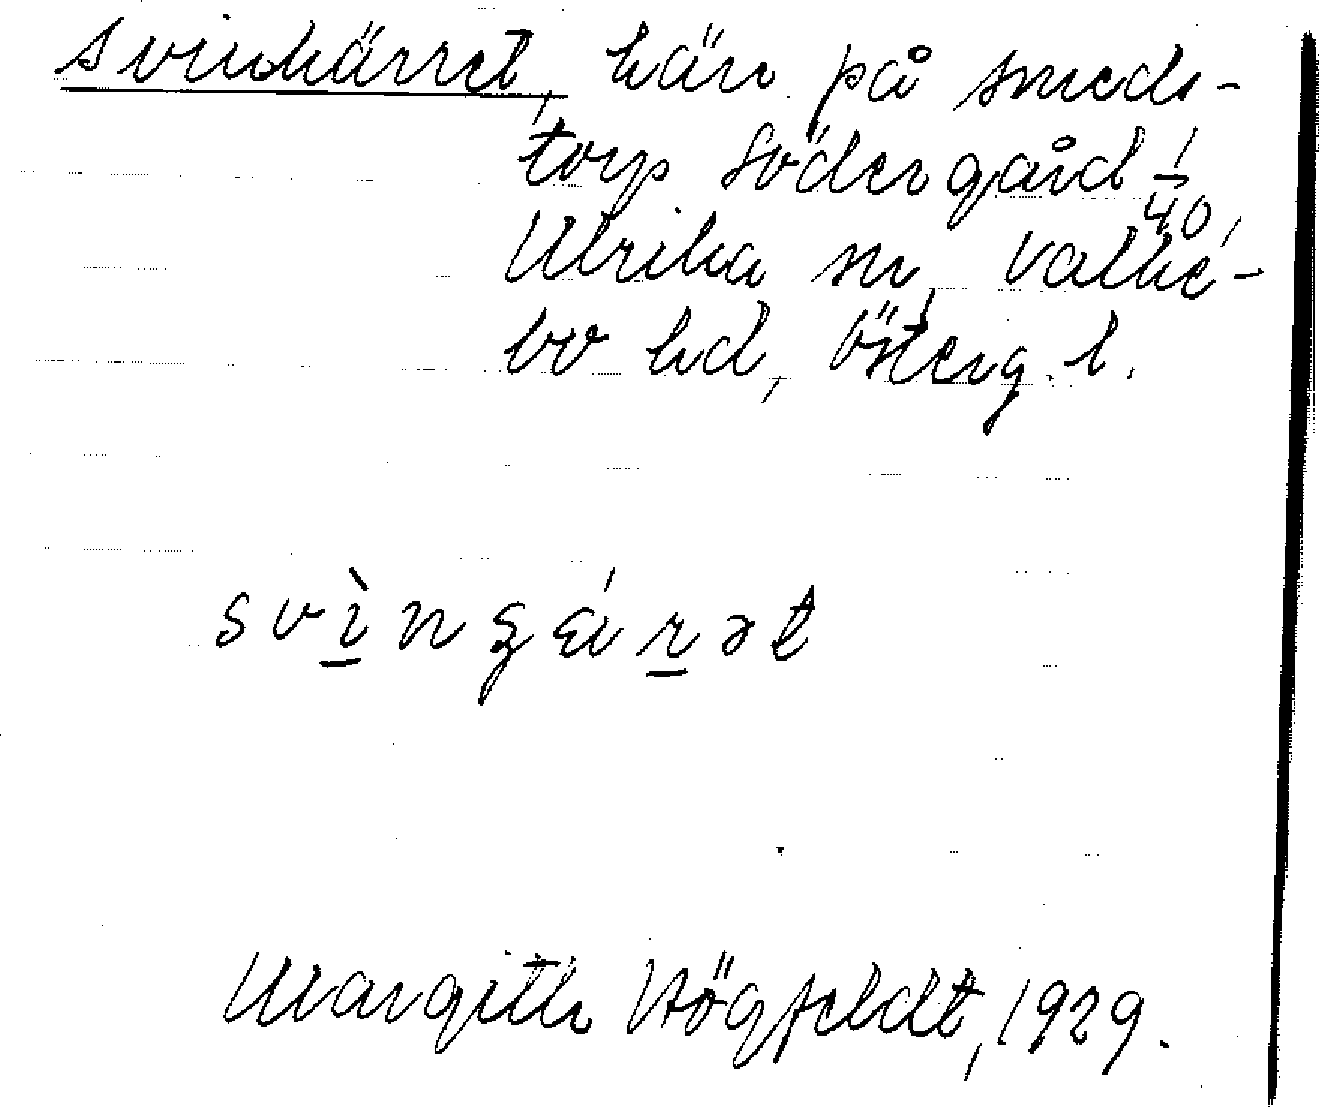 Svinkärret, kärr på Smeds-
torp Södergård 1/40,
Ulrika sn, Valke-
bo hd, Österg. l.
svìnʒǽrət
Margith Högfeldt, 1929.